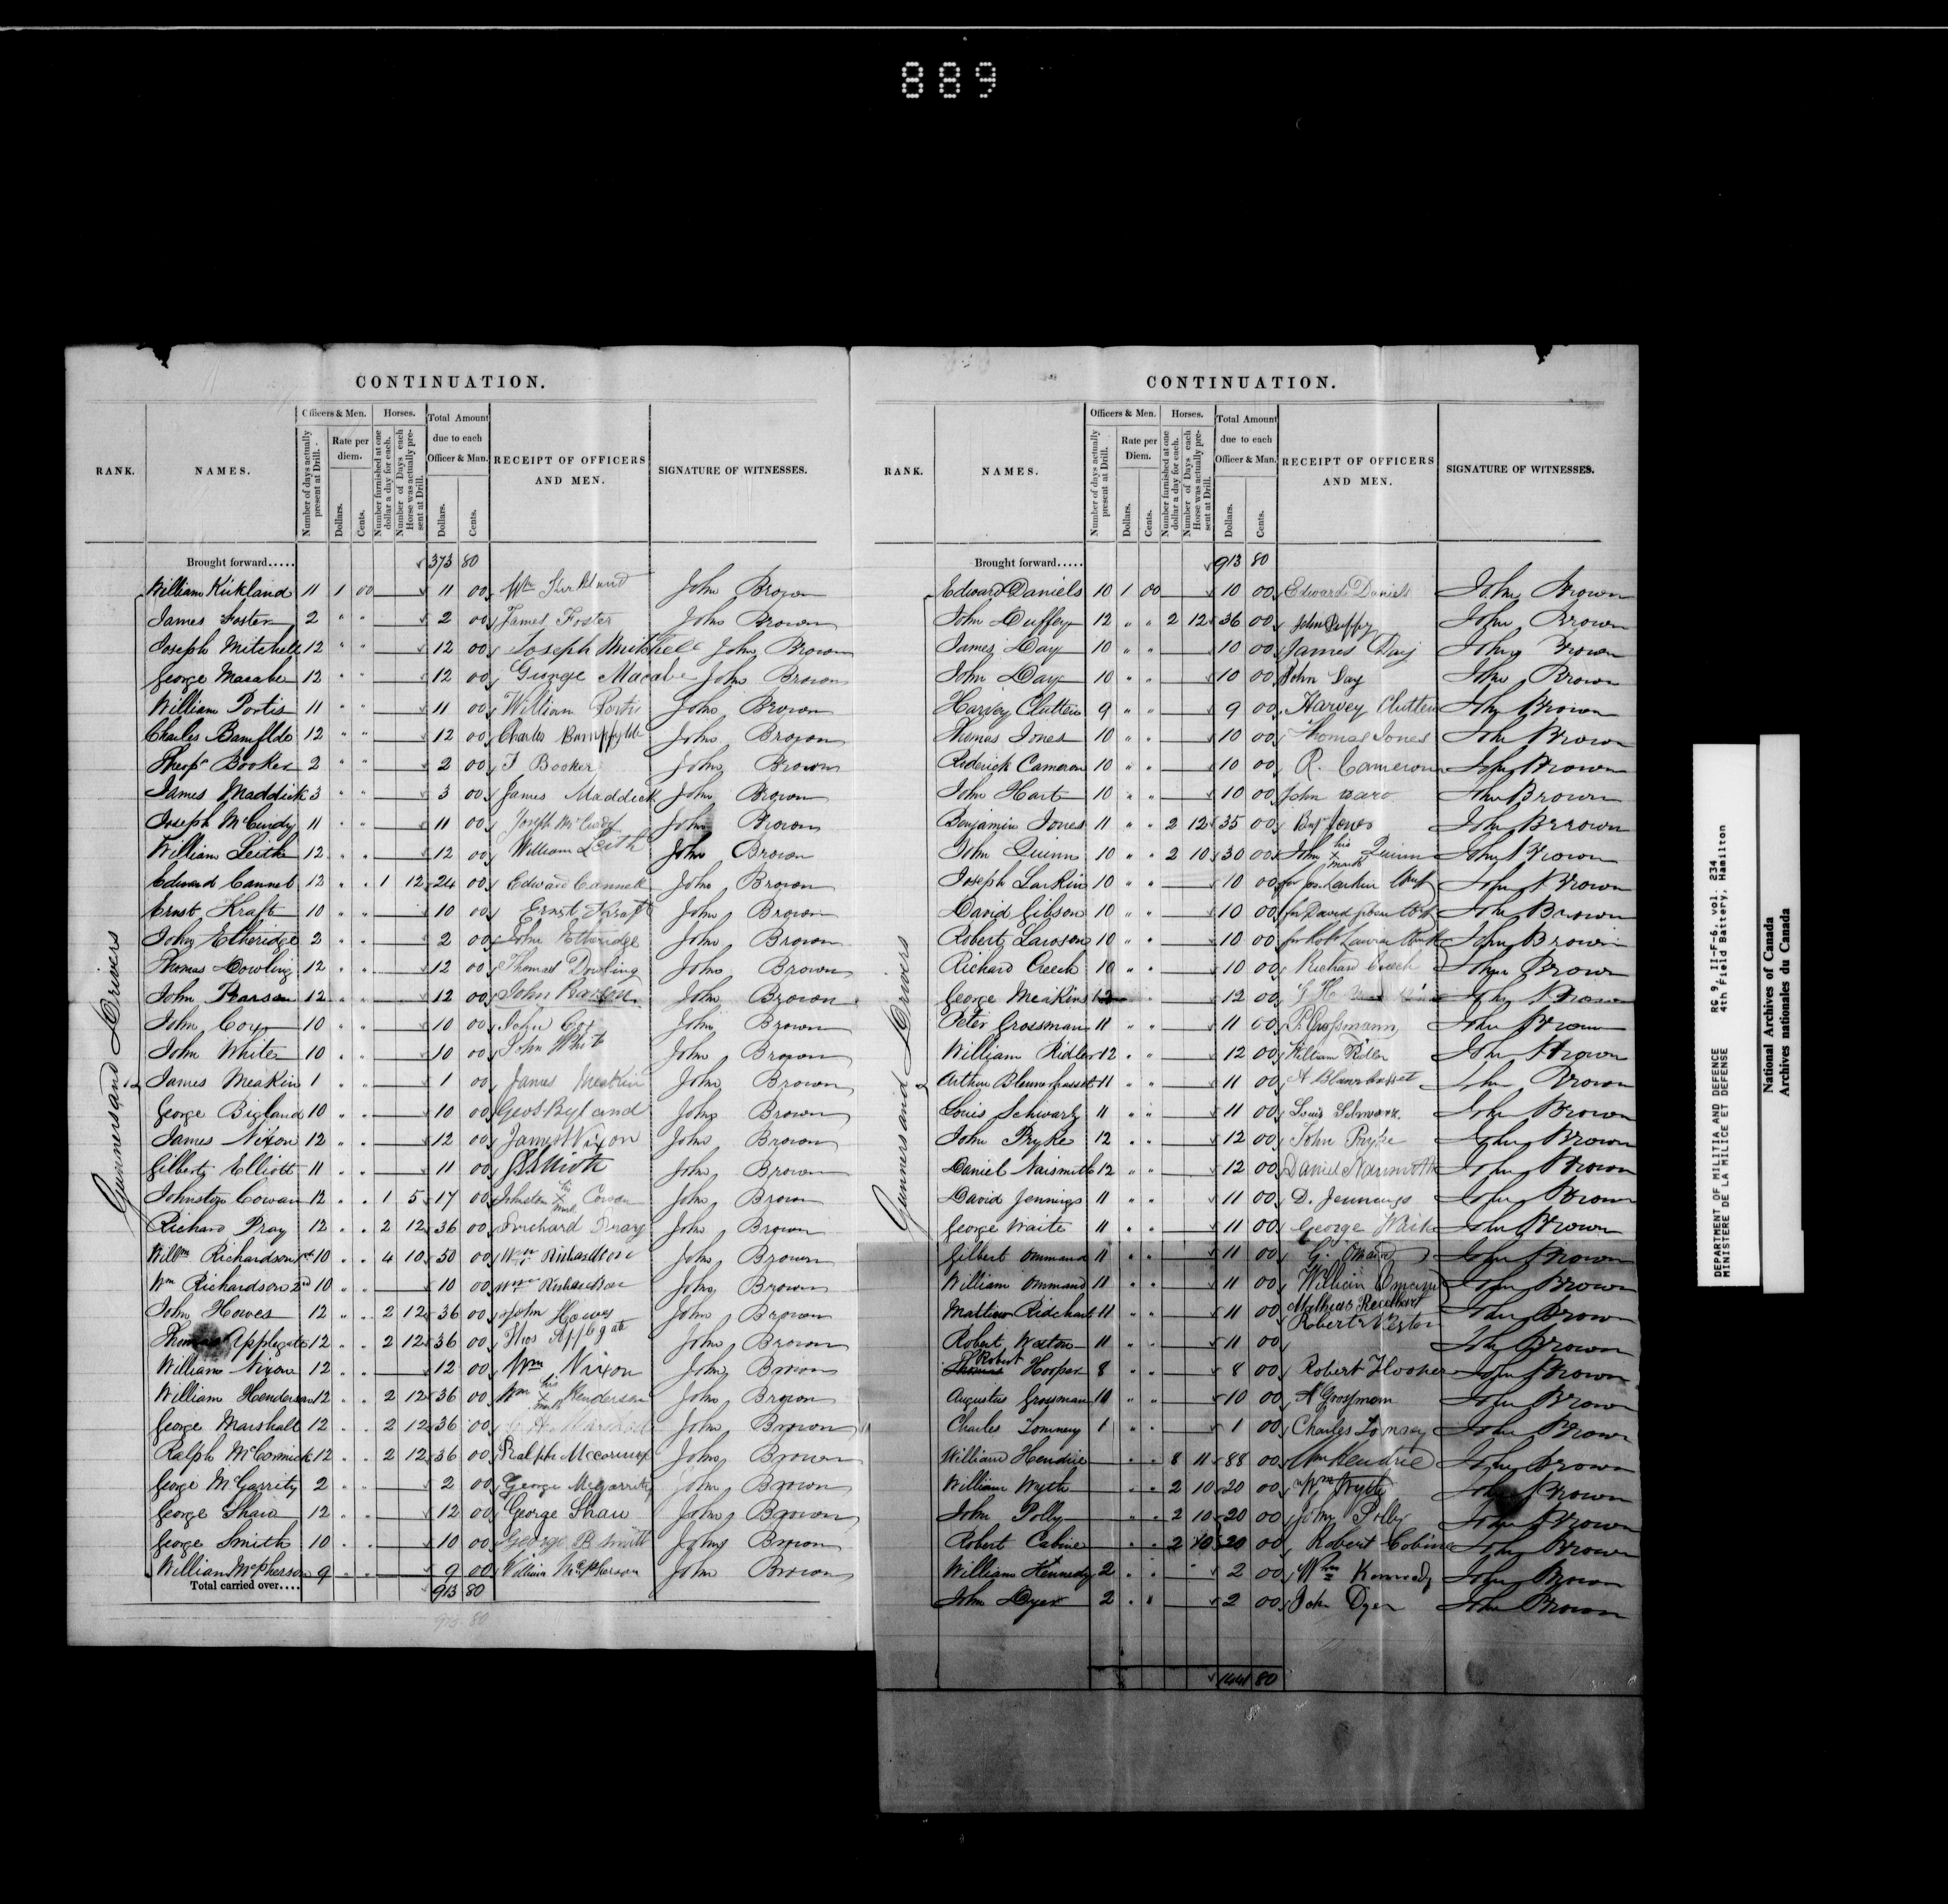 889
CONTINUATION.
RANK. NAMES. Officers & Men. Horses. Total Amount due to each Officer & Man. RECEIPT OF OFFICERS AND MEN. SIGNATURE OF WITNESSES.
Number of days actually present at Drill. Rate per diem. Dollars. Cents. Number furnished at one dollar a day for each. Number of Days each Horse was actually present at Drill. Dollars. Cents.
Gunners and Drivers
Brought forward..... 373 80
William Kirkland 11 1 00 11 00 Wm Kirkland John Brown
James Foster 2 " " 2 00 James Foster John Brown
Joseph Mitchell 12 " " 12 00 Joseph Mitchell John Brown
George Macabe 12 " " 12 00 George Macabe John Brown
William Portis 11 " " 11 00 William Portis John Brown
Charles Bamflde 12 " " 12 00 Charles Bampfylde John Brown
Theops Booker 2 " " 2 00 T Booker John Brown
James Maddick 3 " " 3 00 James Maddick John Brown
Joseph McCurdy 11 " " 11 00 Joseph McCurdy John Brown
William Leith 12 " " 12 00 William Leith John Brown
Edward Cannel 12 " " 1 12 24 00 Edward Cannell John Brown
Ernst Kraft 10 " " 10 00 Ernst Kraft John Brown
John Etheridge 2 " " 2 00 John Etheridge John Brown
Thomas Dowling 12 " " 12 00 Thomas Dowling John Brown
John Pearson 12 " " 12 00 John Pearson John Brown
John Cox 10 " " 10 00 John Cox John Brown
John White 10 " " 10 00 John White John Brown
James Meakin 1 " " 1 00 James Meakin John Brown
George Bigland 10 " " 10 00 Geo Byland John Brown
James Nixon 12 " " 12 00 James Nixon John Brown
Gilbert Elliott 11 " " 11 00 G Elliott John Brown
Johnston Cowan 12 " " 1 5 17 00 Johnston his X mark Cowan John Brown
Richard Pray 12 " " 2 12 36 00 Richard Pray John Brown
Willm Richardson 1st 10 " " 4 10 50 00 Wm Richardson John Brown
Wm Richardson 2nd 10 " " 10 00 Wm Richardson John Brown
John Howes 12 " " 2 12 36 00 John Howes John Brown
Thomas Applegate 12 " " 2 12 36 00 Thos Applgate John Brown
William Nixon 12 " " 12 00 Wm Nixon John Brown
William Henderson 12 " " 2 12 36 00 Wm his X mark Henderson John Brown
George Marshall 12 " " 2 12 36 00 John Brown
Ralph McCormick 12 " " 2 12 36 00 Ralph Mccormick John Brown
George McGarrity 2 " " 2 00 George Mcgarrity John Brown
George Shaw 12 " " 12 00 George Shaw John Brown
George Smith 10 " " 10 00 George B Smith John Brown
William McPherson 9 " " 9 00 William McPherson John Brown
Total carried over.... 913 80
913 80
CONTINUATION.
RANK. NAMES. Officers & Men. Horses. Total Amount due to each Officer & Man. RECEIPT OF OFFICERS AND MEN. SIGNATURE OF WITNESSES.
Number of days actually present at Drill. Rate per Diem. Dollars. Cents. Number furnished at one dollar a day for each. Number of Days each Horse was actually present at Drill. Dollars. Cents.
Gunners and Drivers
Brought forward..... 913 80
Edward Daniels 10 1 00 10 00 Edward Daniels John Brown
John Duffey 12 " " 2 12 36 00 John Duffy John Brown
James Day 10 " " 10 00 James Day John Brown
John Day 10 " " 10 00 John Day John Brown
Harvey Clutten 9 " " 9 00 Harvey Clutten John Brown
Thomas Jones 10 " " 10 00 Thomas Jones John Brown
Roderick Cameron 10 " " 10 00 R. Cameron John Brown
John Hart 10 " " 10 00 John John Brown
Benjamin Jones 11 " " 2 12 35 00 Benj Jones John Brown
John Quinn 10 " " 2 10 30 00 John his X mark Quinn John Brown
Joseph Larkin 10 " " 10 00 for Jos. Larkin John Brown
David Gibson 10 " " 10 00 for David Gibson John Brown
Robert Lawson 10 " " 10 00 for Robt Lawson John Brown
Richard Creech 10 " " 10 00 Richard Creech John Brown
George Meakins 12 12 00 G H John Brown
Peter Grossman 11 " " 11 00 P. Grossmann John Brown
William Ridler 12 " " 12 00 William Ridler John Brown
Arthur Blennerhassett 11 " " 11 00 A Blennerhasset John Brown
Louis Schwarz 11 " " 11 00 Louis Schwarz. John Brown
John Pryke 12 " " 12 00 John Pryke John Brown
Daniel Naismith 12 " " 12 00 Daniel Naismith John Brown
David Jennings 11 " " 11 00 D. Jennings John Brown
George Waite 11 " " 11 00 George Waite John Brown
Gilbert Ommand 11 " " 11 00 G. Omand John Brown
William Ommand 11 " " 11 00 William Omand John Brown
Mattiew Ridchart 11 " " 11 00 Mathias John Brown
Robert Weston 11 " " 11 00 Robert Weston John Brown
Thomas Robert Hooper 8 " " 8 00 Robert Hooper John Brown
Augustus Grossman 10 " " 10 00 A Grossman John Brown
Charles Tommy 1 " " 1 00 Charles John Brown
William Hendrie " " 8 11 88 00 Wm Hendrie John Brown
William Wyth " " 2 10 20 00 Wm Wyth John Brown
John Polly " " 2 10 20 00 John Polly John Brown
Robert Cabine " " 2 10 20 00 Robert Cobine John Brown
William Kennedy 2 " " 2 00 Wm Kennedy John Brown
John Dyer 2 " " 2 00 John Dyer John Brown
1441 80
DEPARTMENT OF MILITIA AND DEFENCE RG 9, II-F-6, vol. 234
MINISTERE DE LA MILICE ET DEFENSE 4th Field Battery, Hamilton
National Archives of Canada
Archives nationales du Canada